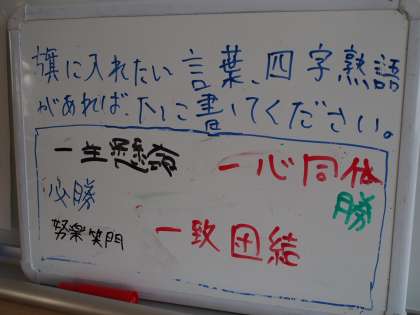 旗に入れたい言葉、四字熟語
があれば、下に書いてください。
一生懸命
一心同体
必勝
勝
努楽笑門
一致団結